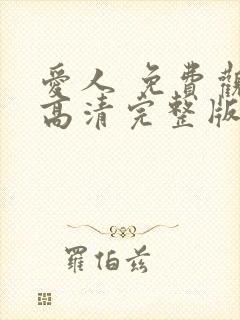 愛人 免費觀
高清完整版
羅伯茲